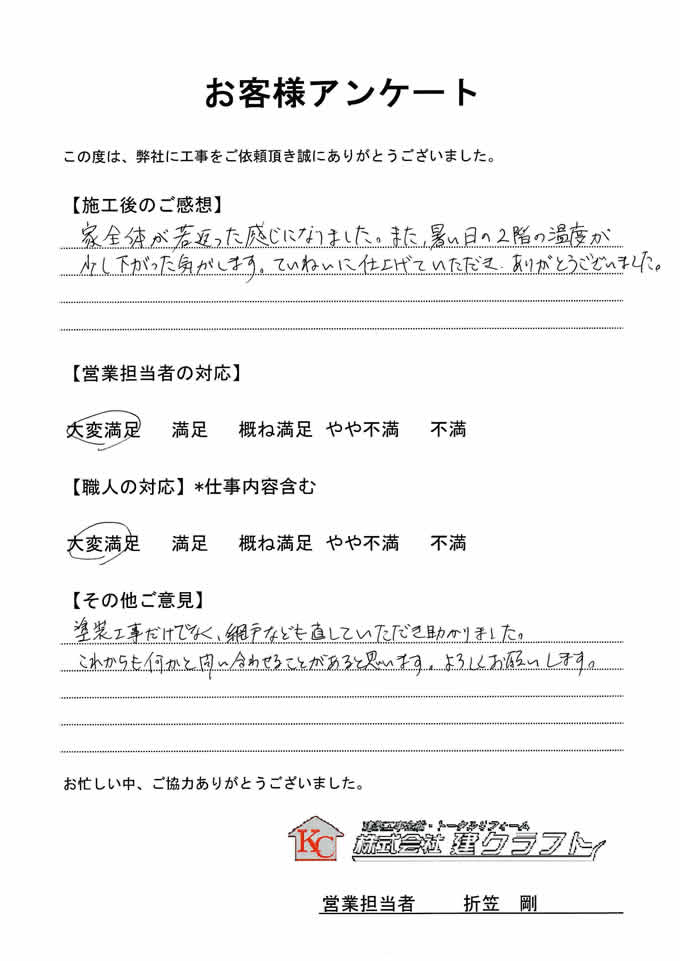 お客様アンケート
この度は、弊社に工事をご依頼頂き誠にありがとうございました。
【施工後のご感想】
家全体が若返った感じになりました。また、暑い日の2階の温度が
少し下がった気がします。ていねいに仕上げていただき、ありがとうございました。
【営業担当者の対応】
大変満足 満足 概ね満足 やや不満 不満
【職人の対応】*仕事内容含む
大変満足 満足 概ね満足 やや不満 不満
【その他ご意見】
塗装工事だけでなく、網戸なども直していただき助かりました。
これからも何かと問い合わせることがあると思います。よろしくお願いします。
お忙しい中、ご協力ありがとうございました。
KC
トータルリフォーム
株式会社 建クラフト
営業担当者 折笠 剛